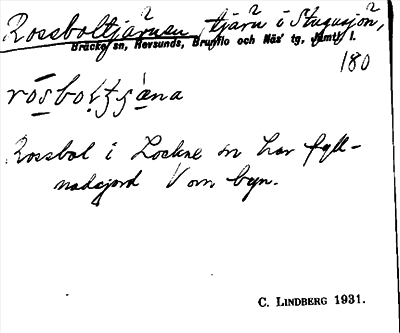 Rossboltjärnen, tjärn i Stugusjön,
Bräcke sn, Revsunds, Brunflo och Näs' tg, Jämtl l.
180
Rossbol i Lockne sn har fyll-
nadsjord V om byn.
C. LINDBERG 1931.